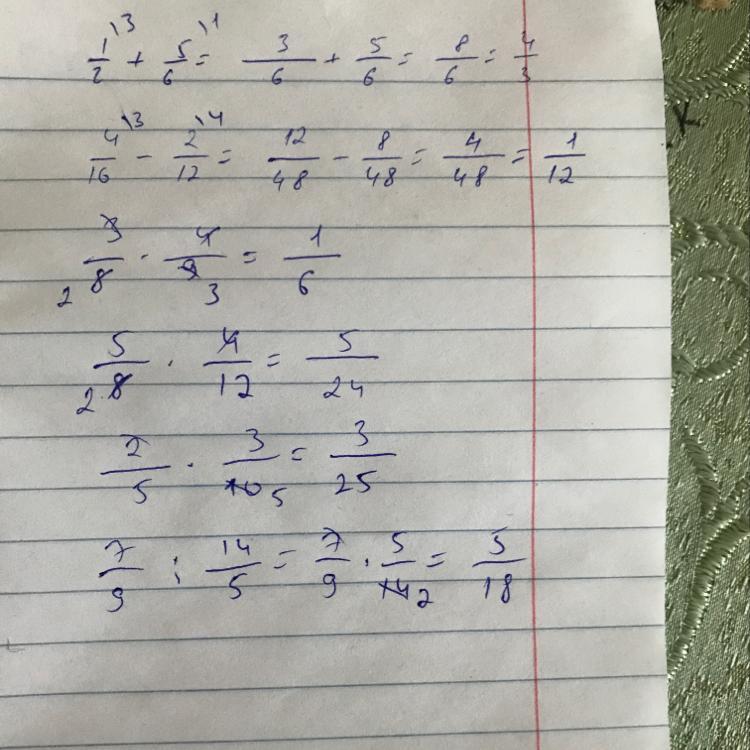 1/2\3 + 5/6\1 = 3/6 + 5/6 = 8/6 = 4/3
4/16\3 - 2/12\4 = 12/48 - 8/48 = 4/48 = 1/12
3/8 2 · 4/9 3 = 1/6
5/8 2 · 4/12 = 5/24
2/5 · 3/10 5 = 3/25
7/9 : 14/5 = 7/9 · 5/14 2 = 5/18